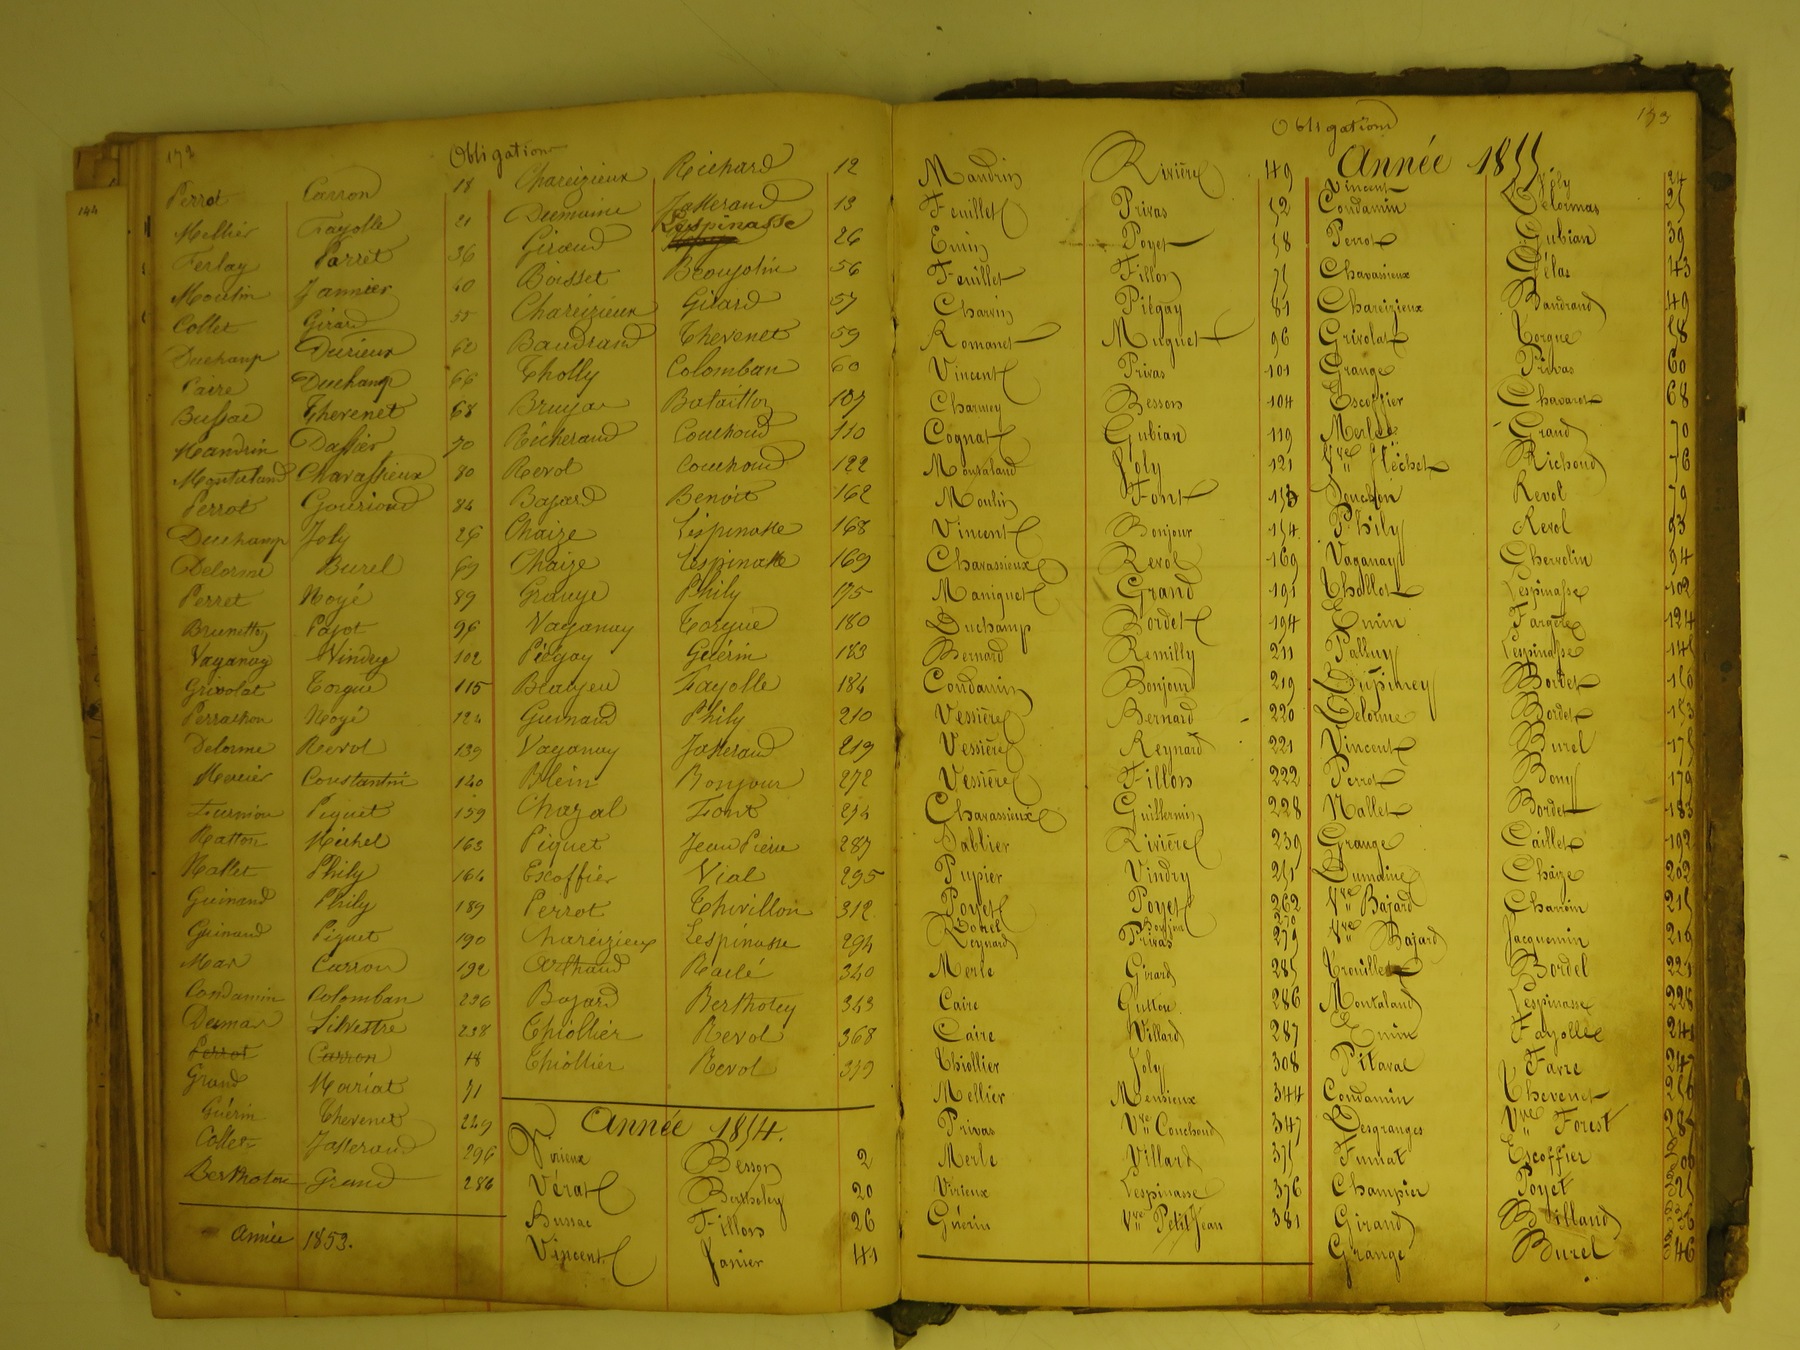 144
172
Obligations
Perrot Carron 18
Mellier Fayolle 21
Ferlay Parret 36
Moulin Jannier 40
Collet Girard 55
Duchamp Durieux 62
Caire Duchamp 66
Bussac Thevenet 68
Mandrin Dassier 70
Montaland Chavassieux 80
Perrot Gouriond 84
Duchamp Joly 26
Delorme Burel 69
Perret Noyé 89
Brunetton Pajot 96
Vaganay Vindry 102
Grivolat Torgue 115
Perrachon Noyé 124
Delorme Revol 139
Mercier Constantin 140
Furnion Piquet 159
Ratton Michel 163
Nallet Phily 164
Guinand Phily 189
Guinand Piquet 190
Mas Carron 192
Condamin Colomban 236
Desmas Silvestre 238
Perrot Carron 18
Grand Moriat 71
Guérin Thevenet 249
Collet Jasserand 296
Bertholon Grand 286
Année 1853.
Chareizieux Richard 12
Dumaine Jasserand 13
Giraud Lespinasse 26
Boisset Beaujolin 56
Chareizieux Girard 57
Baudrand Thevenet 59
Tholly Colomban 60
Bruyas Bataillon 107
Richerand Couchoud 110
Revol Couchoud 122
Bajard Benoit 162
Chaize Lespinasse 168
Chaize Lespinasse 169
Grange Phily 175
Vaganay Torgue 180
Piégay Guérin 183
Beaujeu Fayolle 184
Guinand Phily 210
Vaganay Jasserand 219
Blein Bonjour 272
Chazal Font 274
Piquet Jean Pierre 287
Escoffier Vial 295
Perrot Thivillon 312
Chareizieux Lespinasse 294
Arthaud Raclé 340
Bajard Bertholey 343
Thiollier Revol 368
Thiollier Revol 379
Année 1854.
Virieux Besson 2
Vérat Bertholey 20
Bussac Fillon 26
Vincent Janier 41
173
Obligations
Mandrin Rivière 49
Feuillet Privas 52
Emin Poyet 58
Feuillet Fillon 75
Charvin Piégay 81
Romanet Muguet 96
Vincent Privas 101
Charmey Besson 104
Cognat Gubian 119
Montaland Joly 121
Moulin Font 153
Vincent Bonjour 154
Chavassieux Revol 169
Maniquet Grand 191
Duchamp Bordet 194
Bernard Remilly 211
Condamin Bonjour 219
Vessière Bernard 220
Vessière Reynard 221
Vessière Fillon 222
Chavassieux Guillermin 228
Sablier Rivière 239
Pupier Vindry 251
Poyet Poyet 262
Reynard Privas 279
Merle Girard 285
Caire Gutton 286
Caire Villard 287
Thiollier Joly 308
Mellier Mensieux 344
Privas Vve Couchoud 347
Merle Villard 375
Virieux Lespinasse 376
Guérin Vve Petit Jean 381
Année 1855
Vincent Joly 24
Condamin Delormas 25
Perrot Gubian 39
Chavassieux Gélas 43
Chareizieux Baudrand 49
Grivolat Torgue 58
Grange Privas 60
Escoffier Chavarot 68
Merle Grand 70
Vve Fléchet Richoud 76
Souchon Revol 79
Phily Revol 93
Vaganay Chervolin 94
Thollot Lespinasse 102
Emin Fargère 124
Palluy Lespinasse 145
Dupiney Bordet 156
Delorme Bordet 153
Vincent Burel 175
Perrot Bony 179
Nallet Bordet 183
Grange Caillet 192
Dumaine Chaize 202
Vve Bajard Charvin 215
Vve Bajard Jacquemin 219
Trouillet Bordel 221
Montaland Lespinasse 228
Emin Fayolle 241
Pitaval Favre 247
Condamin Thevenet 256
Desgranges Vve Forest 287
Fumat Escoffier 300
Champier Poyet 325
Giraud Billand 336
Grange Burel 346